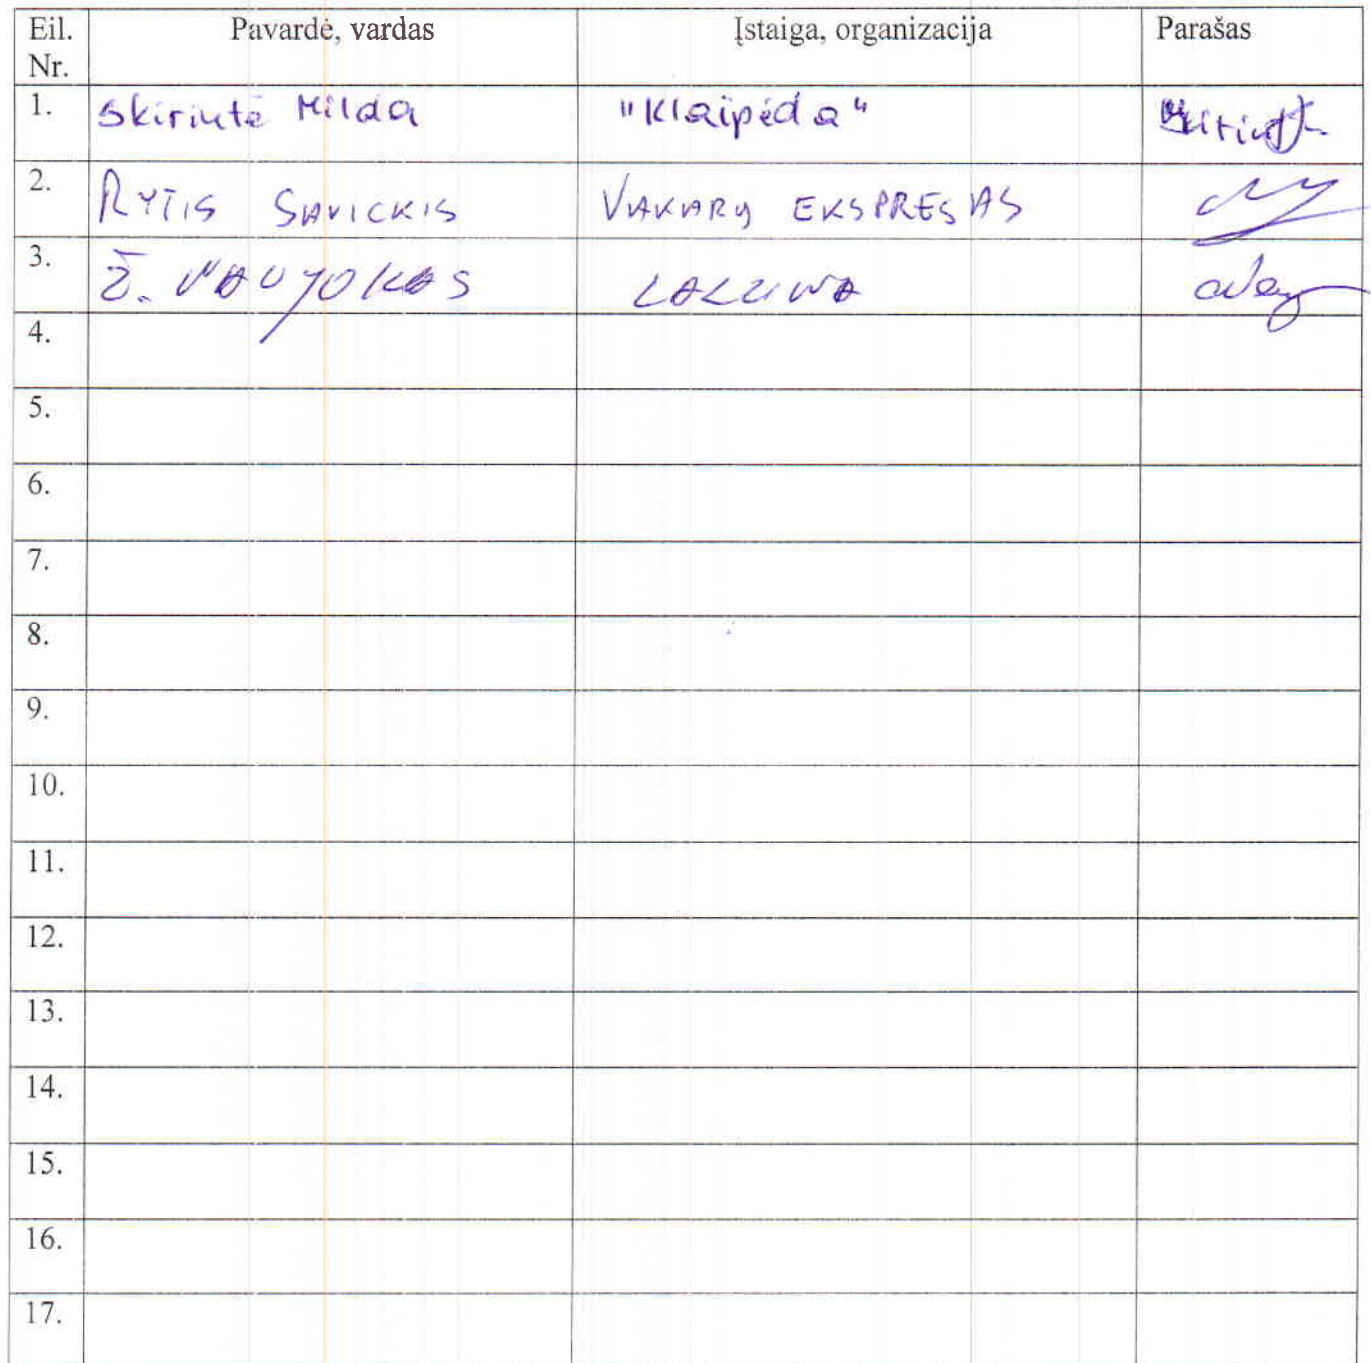 Eil. Nr. Pavardė, vardas Įstaiga, organizacija Parašas
1. Skirutė Milda "Klaipėda"
2. RYTIS SAVICKIS VAKARŲ EKSPRESAS
3. Ž. NAUJOKAS
4.
5.
6.
7.
8.
9.
10.
11.
12.
13.
14.
15.
16.
17.